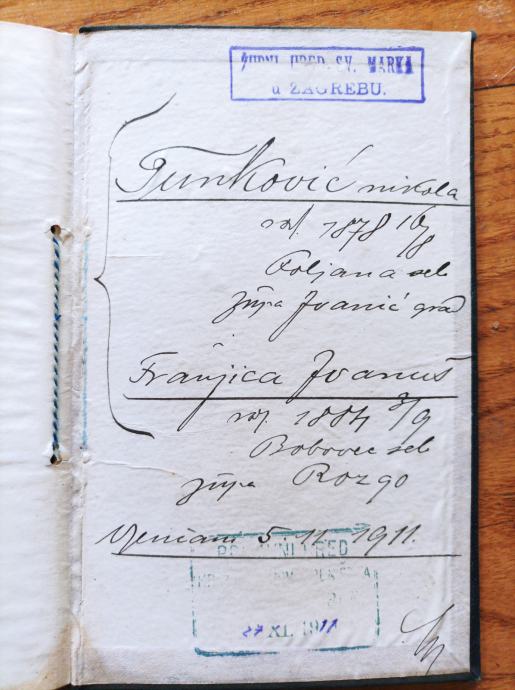 ŽUPNI URED SV. MARKA
u ZAGREBU.
Tunković nikola
roj. 1878 10/8
Poljana selo
župa Ivanić grad
Franjica Ivanuš
roj. 1884 3/9
Bobovec selo
župa Rozgo
Vjenčani 5 11 1911.
URED
27 XI. 1911